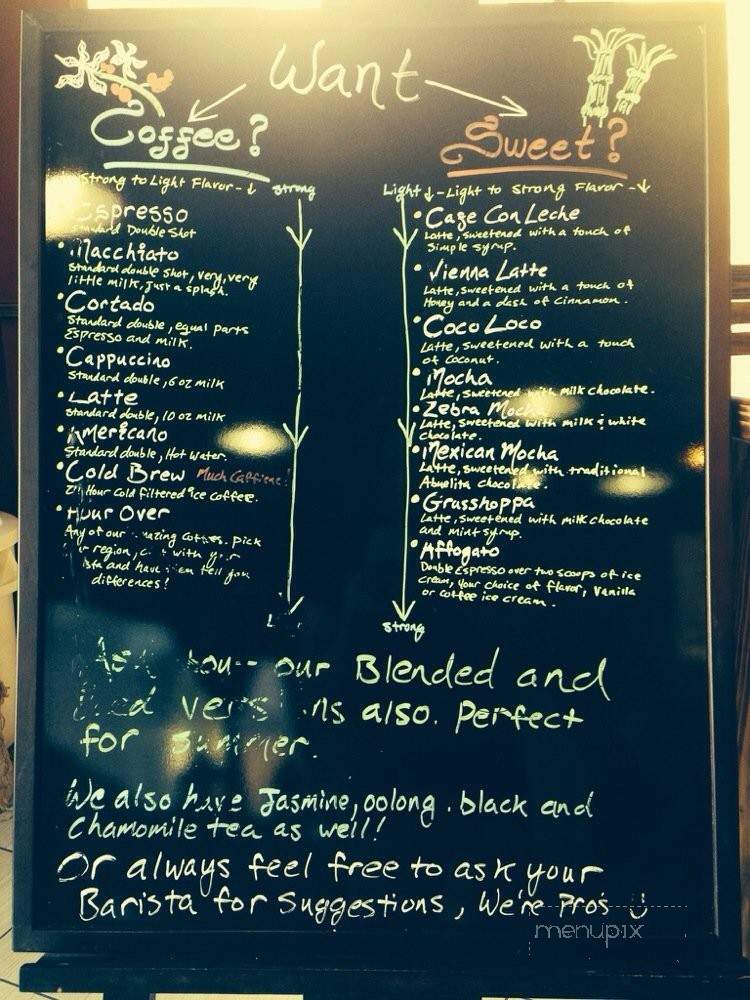 Want
Coffee?
Strong to Light Flavor - Strong
Espresso
Standard Double Shot
Macchiato
Standard double shot, very, very
little milk, Just a splash.
Cortado
Standard double, equal parts
Espresso and milk.
Cappuccino
Standard double, 6 oz milk
Latte
Standard double, 10 oz milk
Americano
Standard double, Hot Water.
Cold Brew Much Caffiene!
Hour Cold filtered ice coffee.
Any of our amazing coffees. Pick
region, with your
and have them tell you
differences!
Sweet?
Light - Light to Strong Flavor -
Cage Con Leche
Latte, sweetened with a touch of
Simple syrup.
Vienna Latte
Latte, sweetened with a touch of
Honey and a dash of cinnamon.
Coco Loco
Latte, sweetened with a touch
of coconut.
Mocha
Latte, sweetened with milk chocolate.
Zebra Mocha
Latte, sweetened with milk & white
chocolate.
Mexican Mocha
Latte, sweetened with traditional
Abuelita chocolate.
Grasshoppa
Latte, sweetened with milk chocolate
and mint syrup.
Affogato
Double Espresso over two scoops of ice
cream, your choice of flavor, vanilla
or coffee ice cream.
Strong
Ask our Blended and
versions also. Perfect
for summer.
We also have Jasmine, oolong. black and
Chamomile tea as well!
Or always feel free to ask your
Barista for Suggestions, We're Pro's
menupix